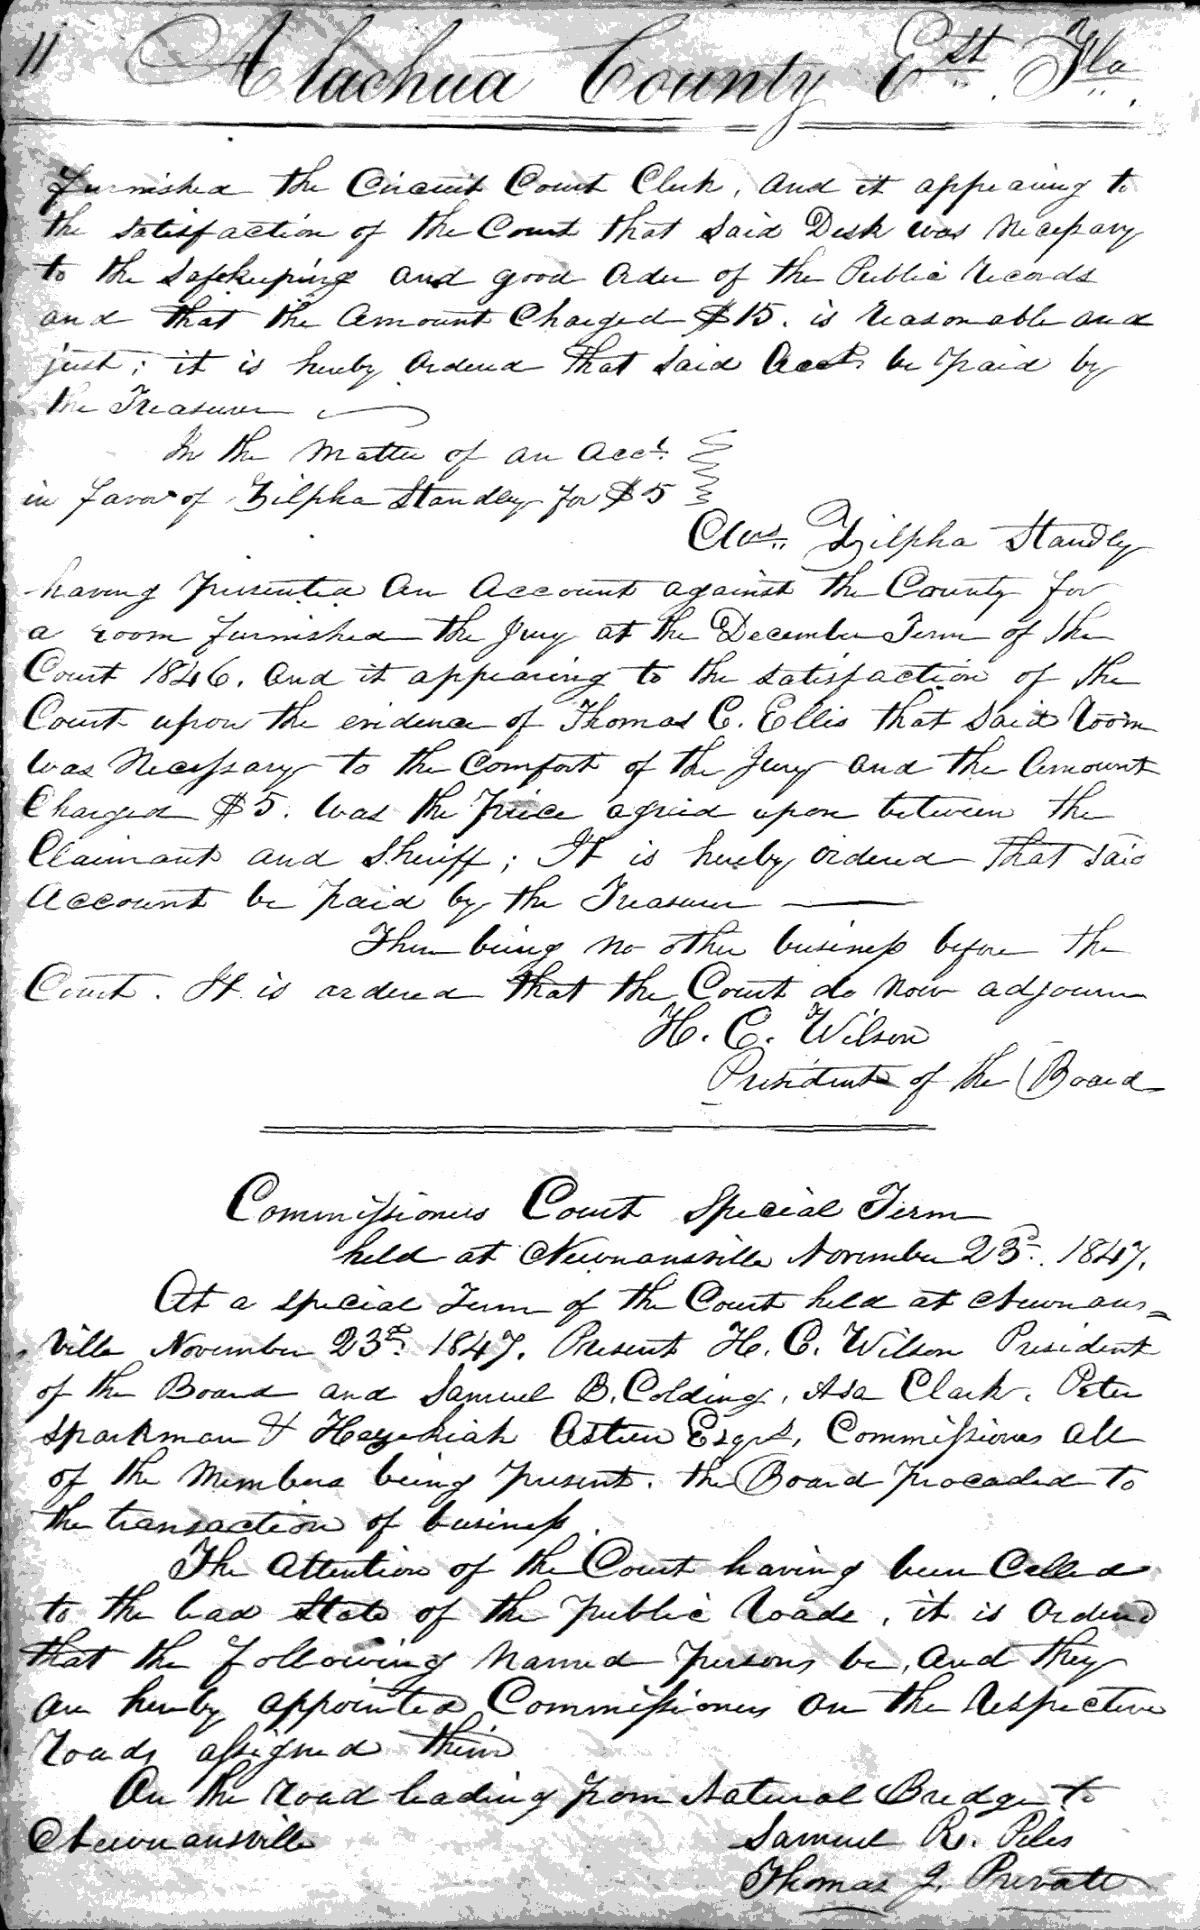 11 Alachua County Est. Fla.
furnished the Circuit Court Clerk, and it appearing to
the satisfaction of the Court that said Desk was necessary
to the safekeeping and good order of the Public records
and that the amount Charged $15. is reasonable and
just; it is hereby ordered that said Acct. be paid by
the Treasurer
In the matter of an acct.
in favor of Zilpha Standley for $5
Mrs. Zilpha Standly
having presented an account against the County for
a room furnished the Jury at the December Term of the
Court 1846. and it appearing to the satisfaction of the
Court upon the evidence of Thomas C. Ellis that said room
was necessary to the comfort of the Jury and the amount
Charged $5. was the price agreed upon between the
Claimant and Sheriff; It is hereby ordered that said
account be paid by the Treasurer
There being no other business before the
Court. It is ordered that the Court do now adjourn
H. C. Wilson
President of the Board
Commissioners Court Special Term
held at Newnansville November 23d. 1847.
At a special Term of the Court held at Newnans=
ville November 23d. 1847. Present H. C. Wilson President
of the Board and Samuel B. Colding, Asa Clark, Peter
Sparkman & Hezekiah Esqrs, Commissioners all
of the members being present. the Board proceeded to
the transaction of business.
The attention of the Court having been Called
to the bad state of the public roads, it is ordered
that the following named persons be, and they
are hereby appointed Commissioners on the respective
roads assigned them
On the road leading from Natural Bridge to
Newnansville Samuel R. Piles
Thomas J. Prevatt